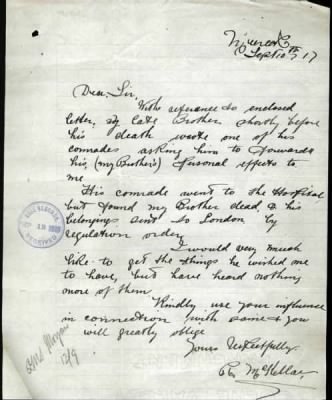 Sept 10th 17
Dear Sir,
With reference to enclosed
letter, my late Brother shortly before
his death wrote one of his
comrades asking him to forward
his, (my Brother's) Personal effects to
me
This comrade went to the Hospital
but found my Brother dead, & his
belongings sent to London by
regulation order.
I would very much
like to get the things he wished me
to have, but have heard nothing
more of them
Kindly use your influence
in connection with same & you
will greatly oblige
Yours Respectfully
McKellar
RECEIVED
12/9